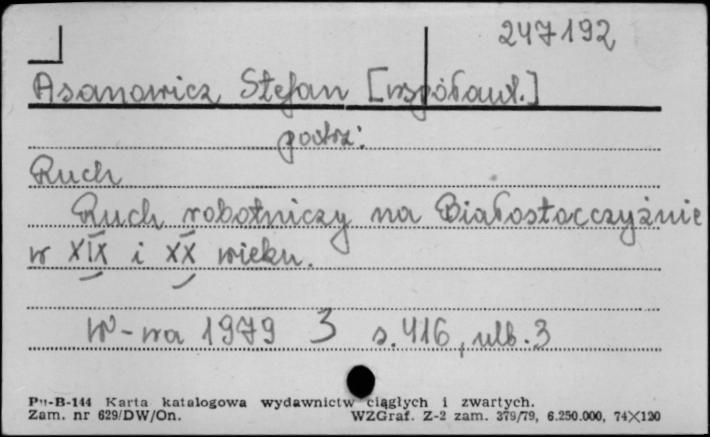 247192
Asanowicz Stefan [współaut.]
patrz:
Ruch
Ruch robotniczy na Białostocczyźnie
w XIX i XX wieku.
W-wa 1979 3 s. 416, nlb. 3
Pu-B-144 Karta katalogowa wydawnictw ciągłych i zwartych.
Zam. nr 629/DW/On. WZGraf. Z-2 zam. 379/79, 6.250.000, 74×120